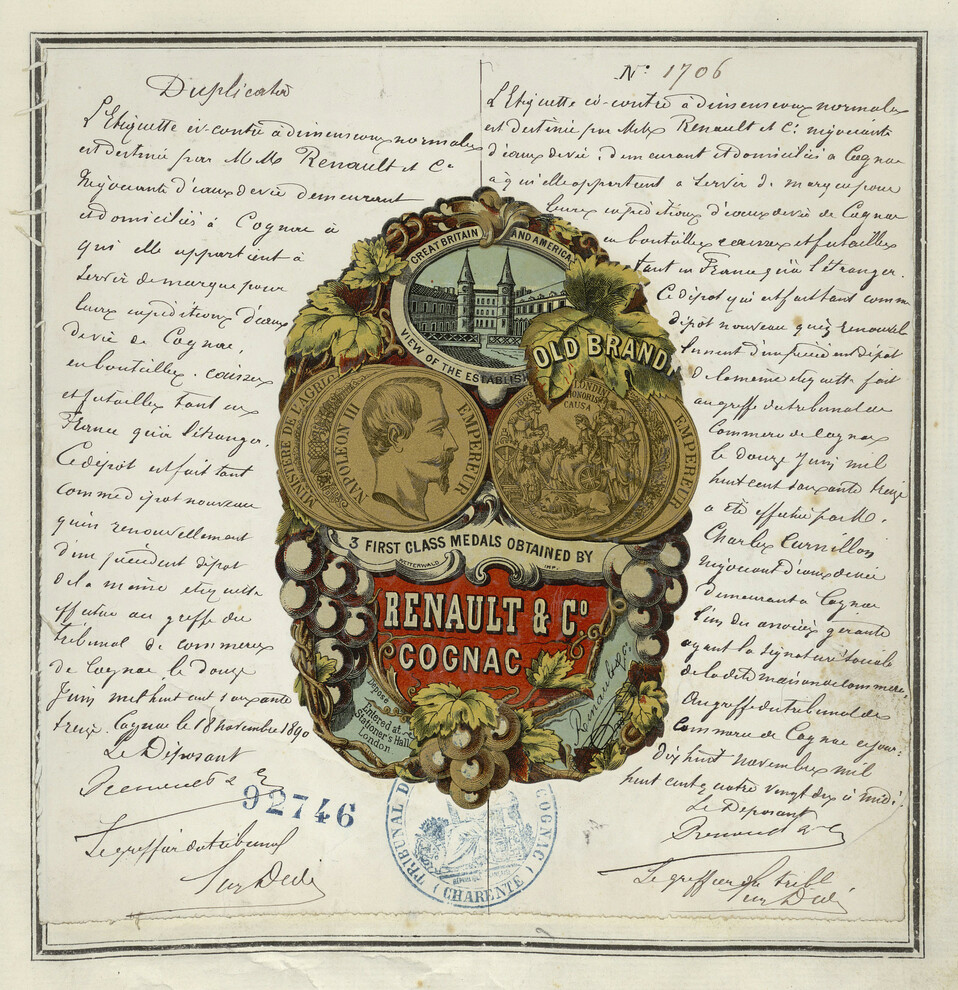 Duplicata
L'Etiquette ci-contre à dimensions normales
est destinée par M.M. Renault et Cie
Négociants d'eaux de vie demeurant
et domiciliés à Cognac à
qui elle appartient à
servir de marque pour
leurs expéditions d'eaux
de vie de Cognac,
en bouteilles, caisses
et futailles tant en
France qu'à l'étranger.
Ce dépôt est fait tant
comme dépôt nouveau
qu'en renouvellement
d'un précédent dépôt
de la même étiquette
effectué au greffe du
tribunal de commerce
de Cognac le douze
Juin mil huit cent soixante
treize. Cognac le 18 novembre 1890
Le Déposant
Renault & Co
92746
Le greffier du tribunal
No 1706
L'Etiquette ci-contre à dimensions normales
est destinée par M.M. Renault et Cie négociants
d'eaux de vie, demeurant et domiciliés à Cognac
à qui elle appartient à servir de marque pour
leurs expéditions d'eaux de vie de Cognac
en bouteilles caisses et futailles
tant en France qu'à l'étranger.
Ce dépôt qui est fait tant comme
dépôt nouveau qu'en renouvel
lement d'un précédent dépôt
de la même étiquette fait
au greffe du tribunal de
Commerce de Cognac
le douze Juin mil
huit cent soixante treize
a été effectué par M.
Charles Curnillon
négociant d'eaux de vie
demeurant à Cognac
l'un des associés gérants
ayant la signature sociale
de la dite maison de commerce,
Au greffe du tribunal de
Commerce de Cognac ce jour:
dix huit novembre mil
huit cent quatre vingt dix à midi.
Le Déposant
Renault & Co
Le greffier du tribl
GREAT BRITAIN AND AMERICA
VIEW OF THE ESTABLIS
OLD BRAND
MINISTÈRE DE L'AGRIC
NAPOLEON III EMPEREUR
LONDINI
HONORIS
CAUSA
EMPEREUR
3 FIRST CLASS MEDALS OBTAINED BY
WITTERWALD IMP.
RENAULT & Co
COGNAC
Déposé
Entered at
Stationer's Hall
London
Renault & Co
TRIBUNAL D COGNAC
(CHARENTE)